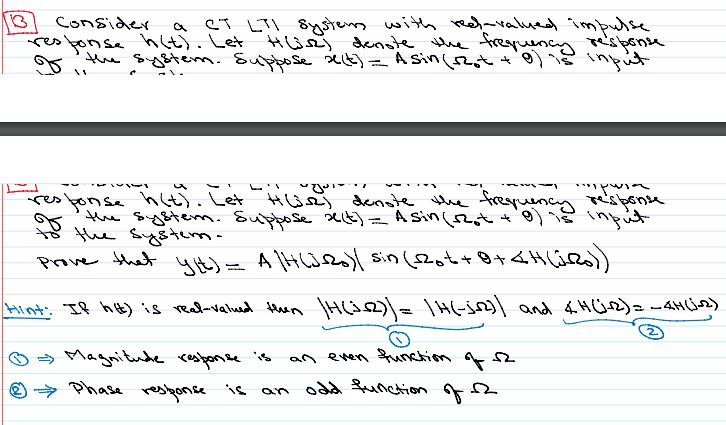 13 Consider a CT LTI system with real-valued impulse
response h(t). Let H(jΩ) denote the frequency response
of the system. Suppose x(t) = A sin(Ω₀t + θ) is input
response h(t). Let H(jΩ) denote the frequency response
of the system. Suppose x(t) = A sin(Ω₀t + θ) is input
to the system.
Prove that y(t) = A |H(jΩ₀)| sin(Ω₀t + θ + ∡H(jΩ₀))
Hint: If h(t) is real-valued then |H(jΩ)| = |H(-jΩ)| and ∡H(jΩ) = -∡H(jΩ)
① ②
① ⇒ Magnitude response is an even function of Ω
② ⇒ Phase response is an odd function of Ω